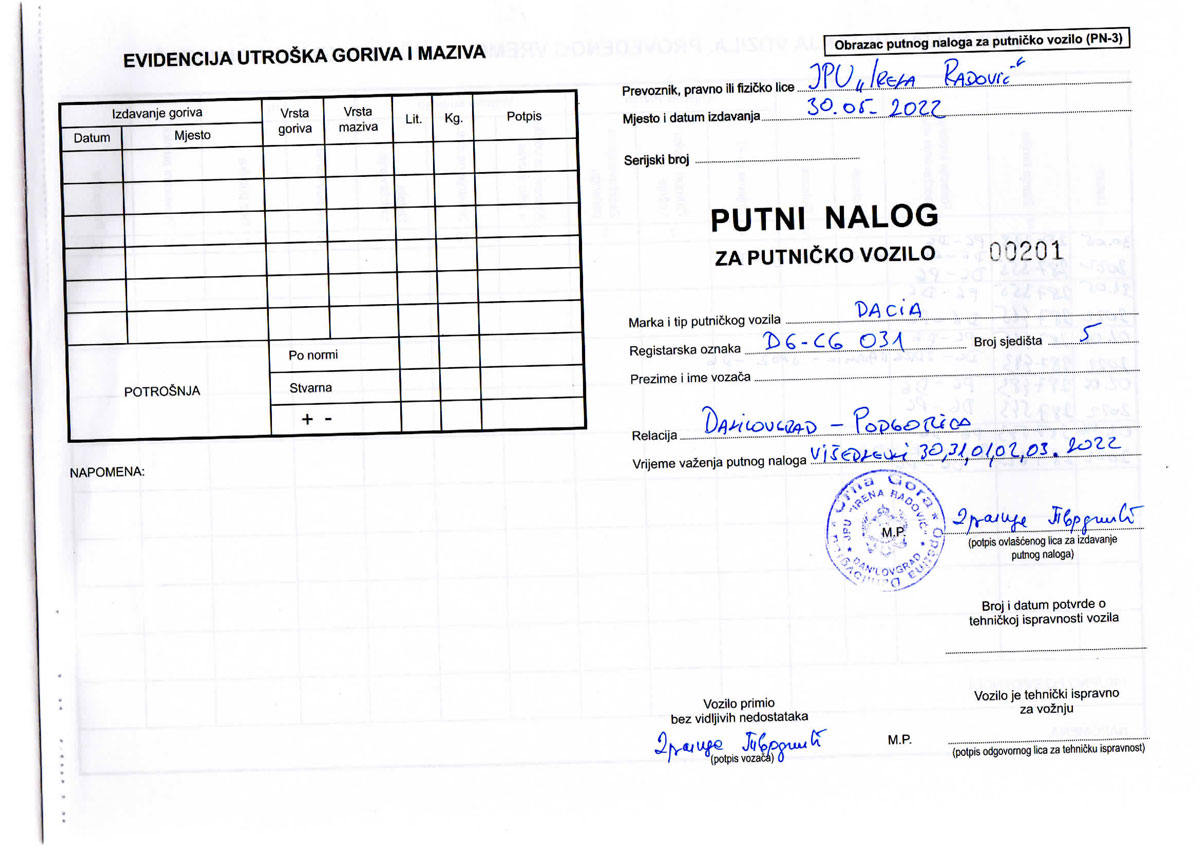 EVIDENCIJA UTROŠKA GORIVA I MAZIVA
Izdavanje goriva
Datum
Mjesto
Vrsta goriva
Vrsta maziva
Lit.
Kg.
Potpis
POTROŠNJA
Po normi
Stvarna
+ -
NAPOMENA:
Obrazac putnog naloga za putničko vozilo (PN-3)
Prevoznik, pravno ili fizičko lice JPU „Irena Radović“
Mjesto i datum izdavanja 30.05-2022
Serijski broj
PUTNI NALOG
ZA PUTNIČKO VOZILO 00201
Marka i tip putničkog vozila DACIA
Registarska oznaka DG-CG 031 Broj sjedišta 5
Prezime i ime vozača
Relacija DANILOVGRAD – PODGORICA
Vrijeme važenja putnog naloga VIŠEDNEVNI 30,31,01,02,03.2022
Crna Gora * Opština Danilovgrad
JPU "IRENA RADOVIĆ"
DANILOVGRAD
M.P.
(potpis ovlašćenog lica za izdavanje
putnog naloga)
Broj i datum potvrde o
tehničkoj ispravnosti vozila
Vozilo primio
bez vidljivih nedostataka
(potpis vozača)
M.P.
Vozilo je tehnički ispravno
za vožnju
(potpis odgovornog lica za tehničku ispravnost)